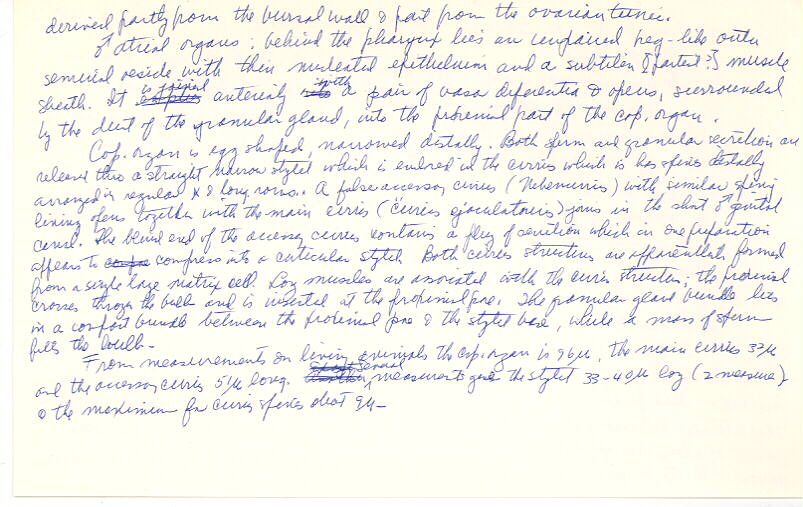 derived partly from the bursal wall & part from the ovarian tunic.
♂ atrial organs; behind the pharynx lies an unpaired peg-like outer
seminal vesicle with thin nucleated epithelium and a subtilen [fastest?] muscle
sheath. It is joined anteriorly with a pair of vasa deferentia & opens, surrounded
by the duct of the granular gland, into the proximal part of the cop. organ.
Cop. organ is egg shaped, narrowed distally. Both sperm and granular secretion are
release thru a straight narrow stylet which is enclosed in the cirrus which is has spines distally
arranged in regular 8 long rows. A false accessory cirrus (Nebencirrus) with similar spiny
lining opens together with the main cirrus (Cirrus ejaculatorius) joins in the short ♂ genital
canal. The blind end of the accessory cirrus contains a plug of secretion which in one preparation
appears to compress into a cuticular stylet. Both cirrus structures are apparently formed
from a single large matrix cell. Long muscles are associated with the cirrus structure. the proximal
crosses through the bulb and is inserted at the proximal pore. The granular gland bundle lies
in a compact bundle between the proximal pore & the stylet base, while a mass of sperm
fills the bulb.
From measurements on living animals the cop. organ is 96µ, the main cirrus 37µ
and the accessory cirrus 51µ long. Several measurements gave the stylet 33-40µ long (2 measure)
& the maximum for cirrus spines about 9µ-